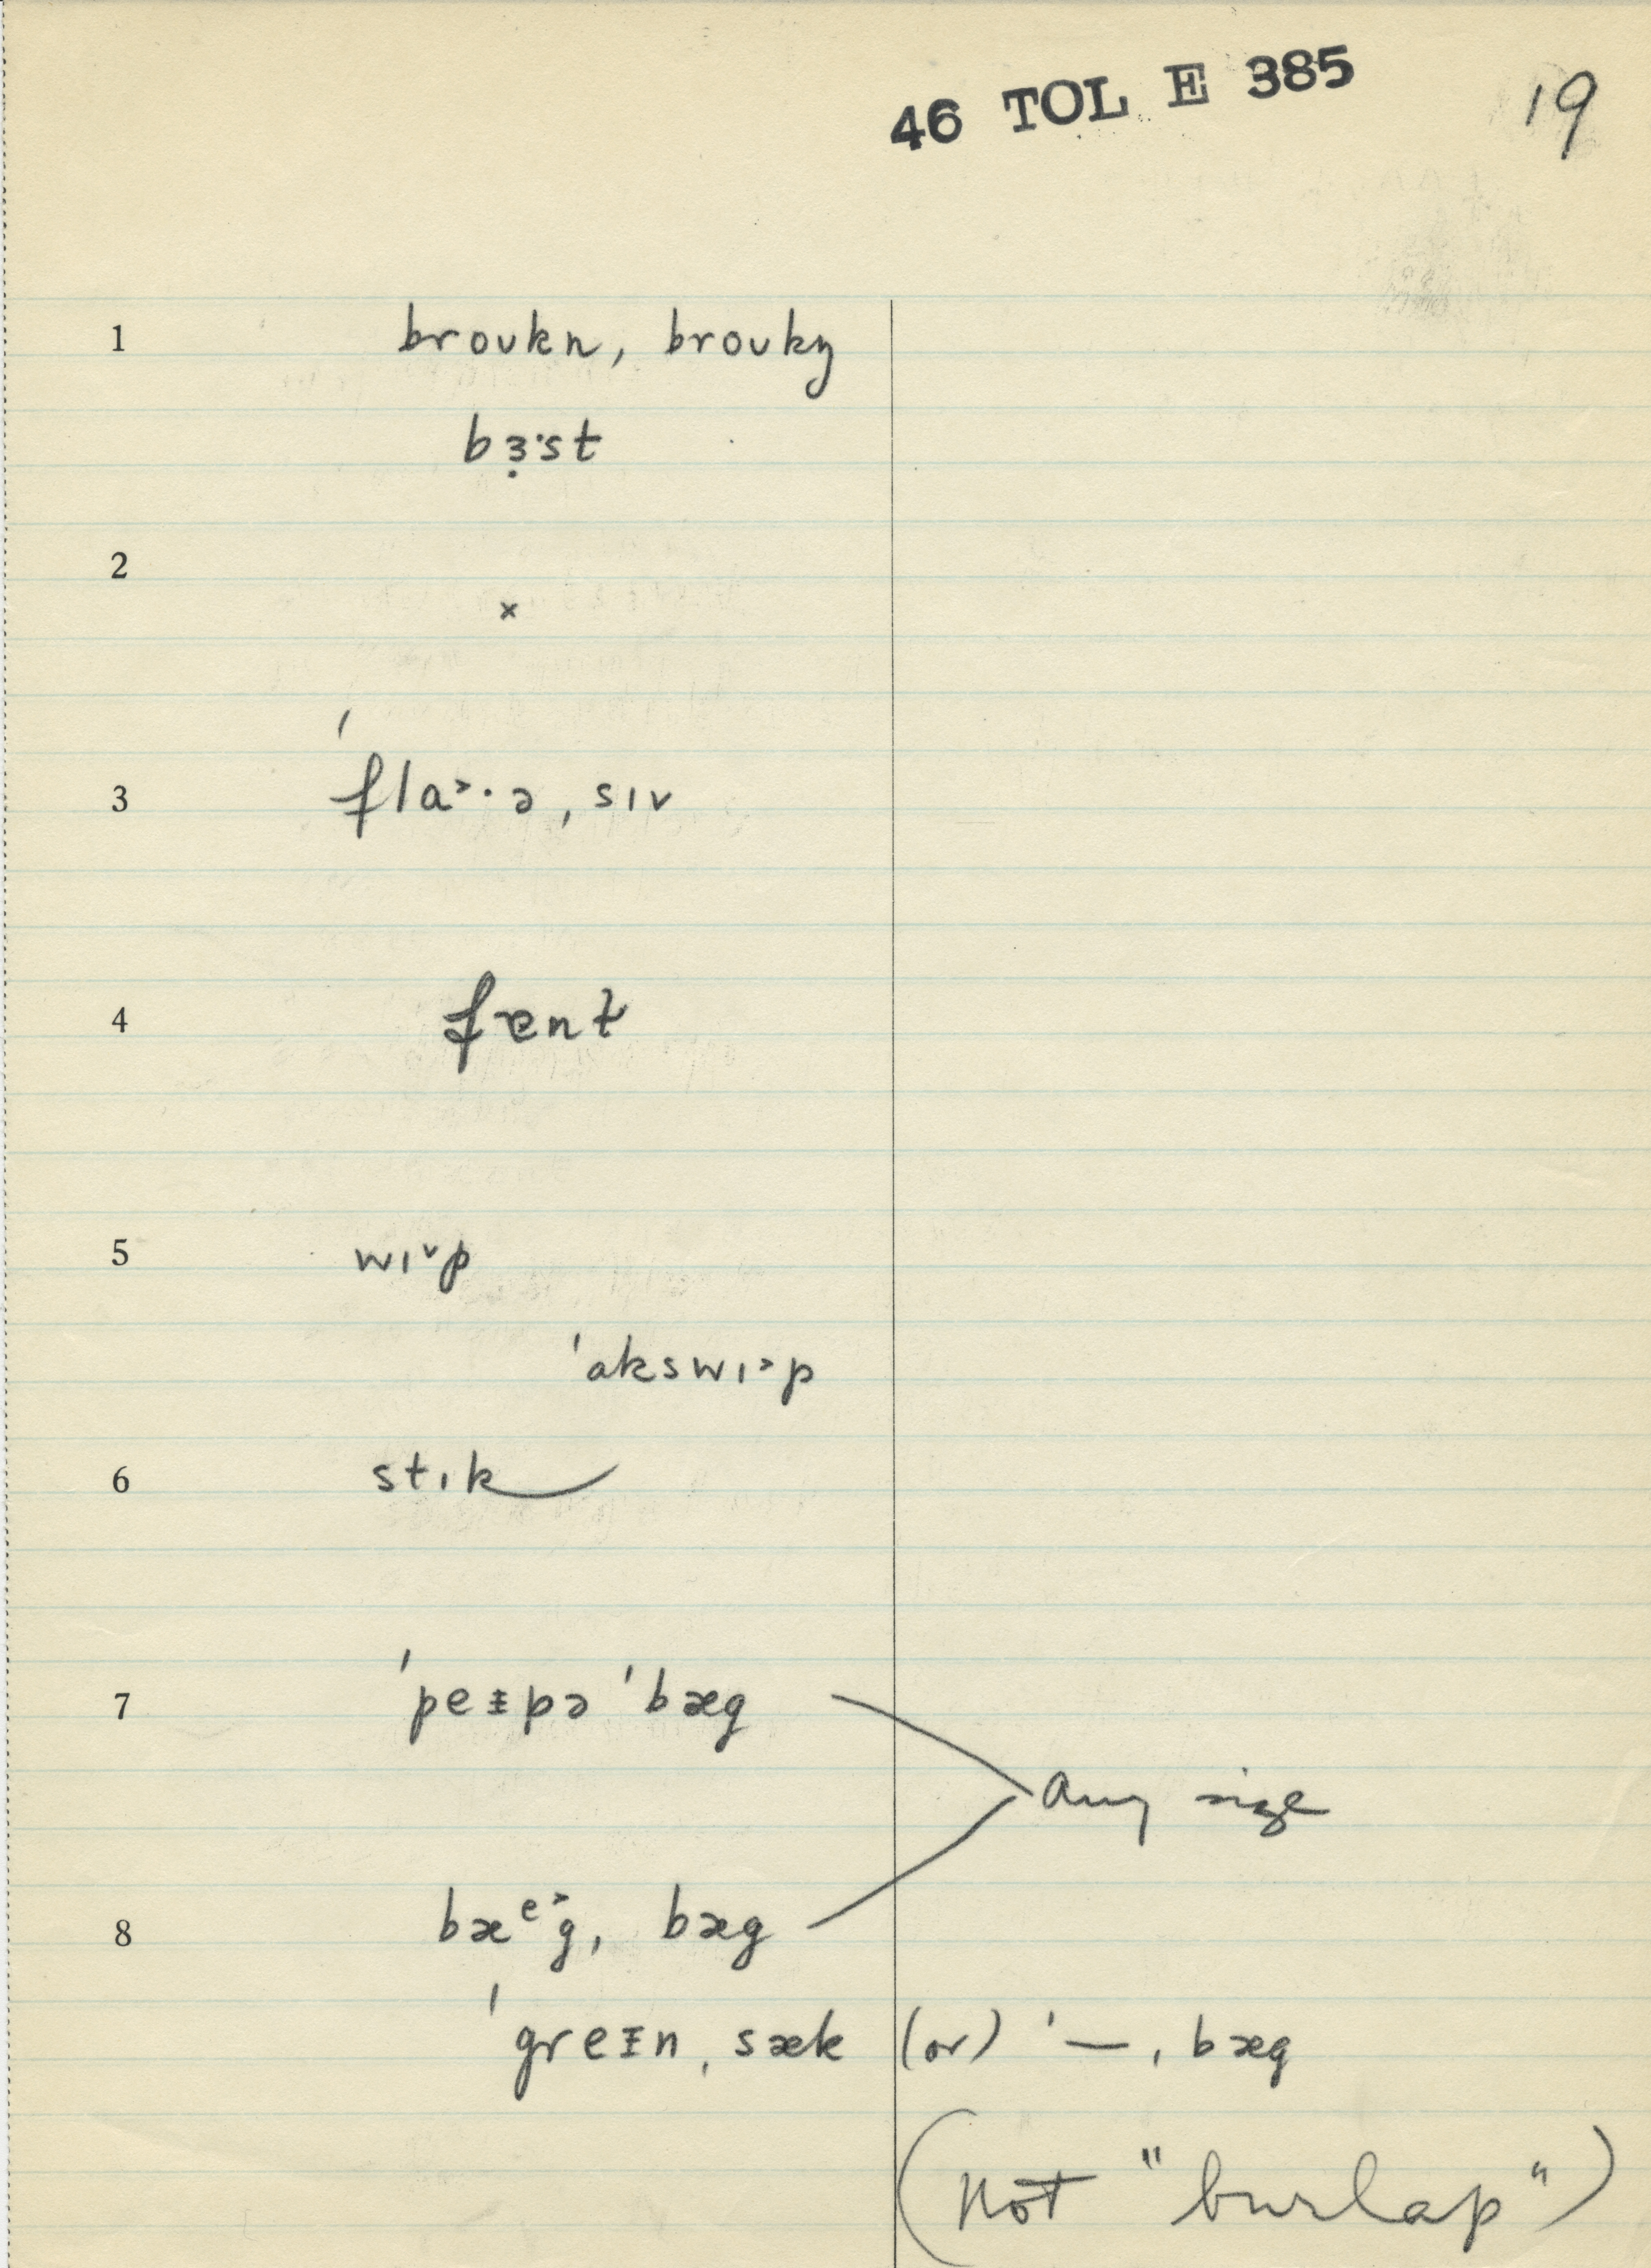 46 TOL E 385
19
1 broʊkn, broʊkŋ
bɜ̣·st
2
×
3 ˈflɑ˃·ə, sɪv
4 fɛnt
5 wɪ˅p
ˈɑkswɪ˃p
6 stɪk
7 ˈpeᵻpə ˈbæg
any size
8 bæᵉ˃g, bæg
ˈgreᵻn ˌsæk (or) ˈ— ˌbæg
(not "burlap")